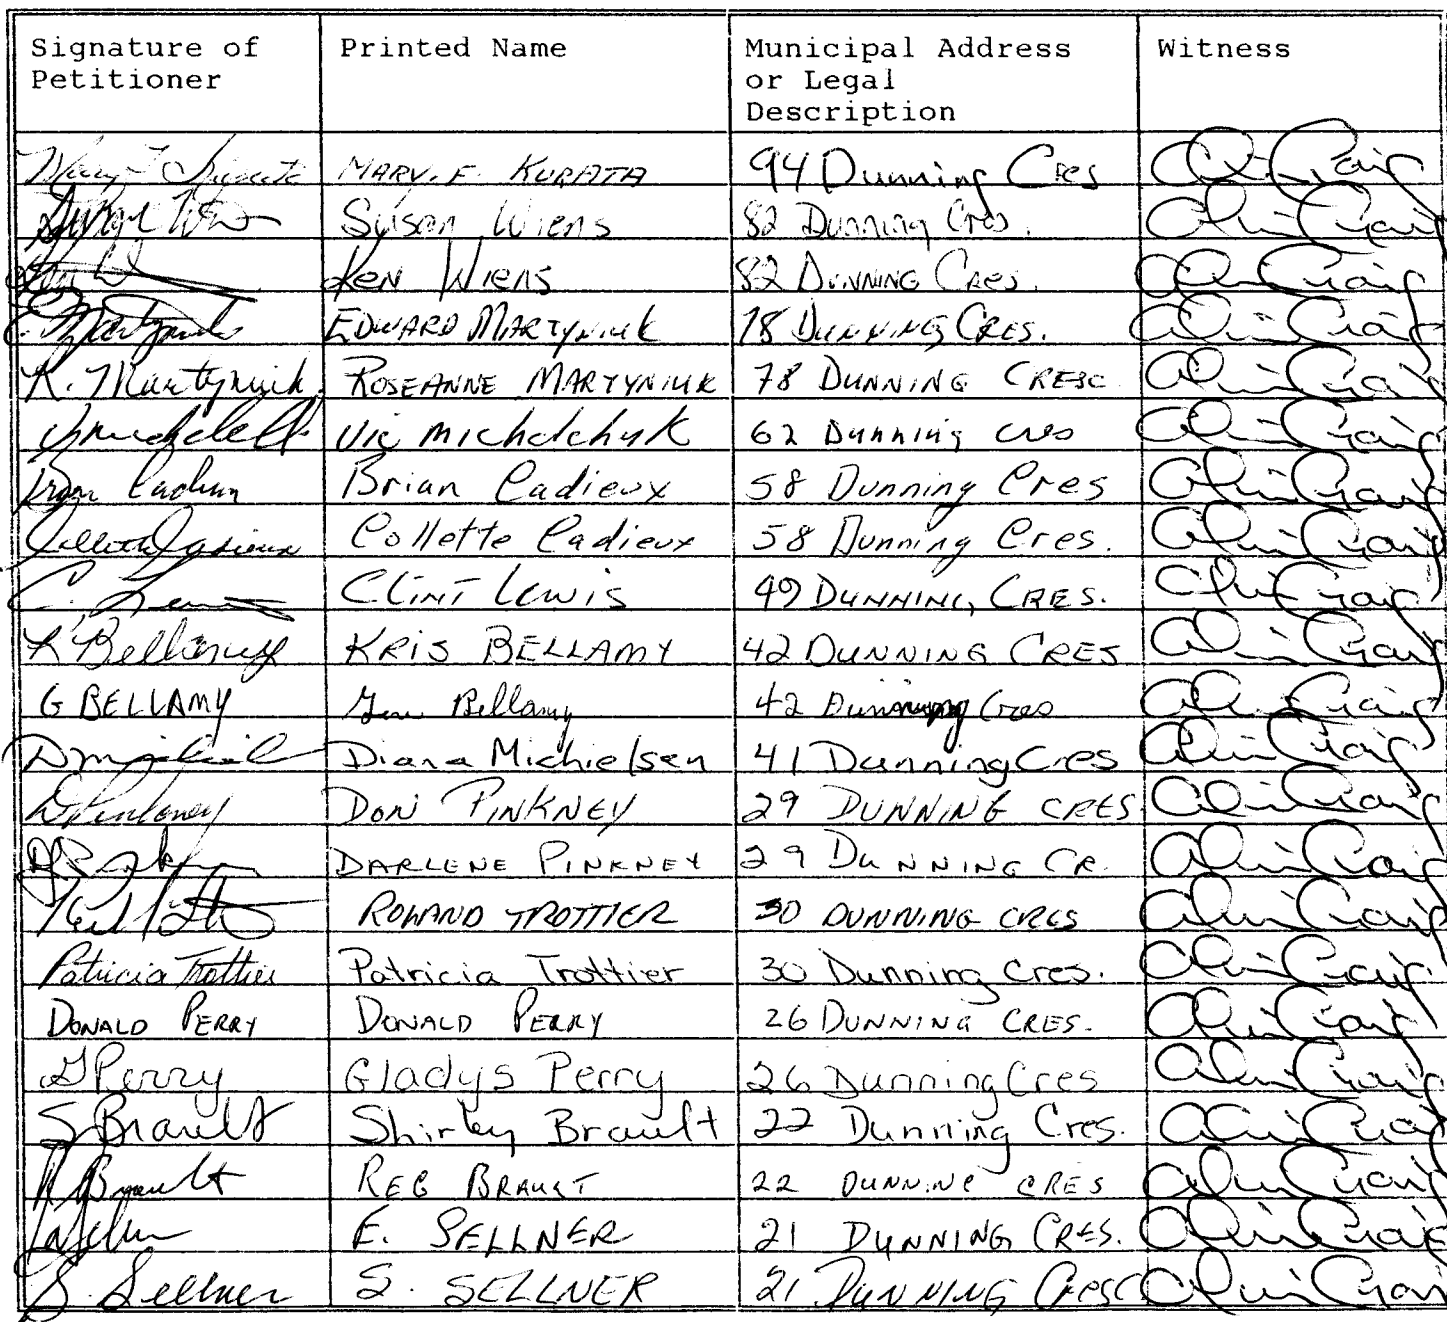 Signature of Petitioner Printed Name Municipal Address or Legal Description Witness
MARY. F. KURATA 94 Dunning Cres Alvin Craig
Susan Wiens 82 Dunning Cres. Alvin Craig
Ken Wiens 82 DUNNING CRES. Alvin Craig
E. Martyniuk EDWARD MARTYNIUK 78 DUNNING CRES. Alvin Craig
R. Martyniuk ROSEANNE MARTYNIUK 78 DUNNING CRESC Alvin Craig
Vic michalchyk 62 Dunning cres Alvin Craig
Brian Cadieux 58 Dunning Cres Alvin Craig
Collette Cadieux Collette Cadieux 58 Dunning Cres. Alvin Craig
C. Lewis CLINT LEWIS 49 DUNNING CRES. Alvin Craig
K Bellamy KRIS BELLAMY 42 DUNNING CRES Alvin Craig
G BELLAMY Bellamy 42 Dunning Cres Alvin Craig
Diana Michielsen 41 Dunning Cres Alvin Craig
D Pinkney DON PINKNEY 29 DUNNING CRES Alvin Craig
DARLENE PINKNEY 29 DUNNING CR. Alvin Craig
ROLAND TROTTIER 30 DUNNING CRES Alvin Craig
Patricia Trottier Patricia Trottier 30 Dunning Cres. Alvin Craig
DONALD PERRY DONALD PERRY 26 DUNNING CRES. Alvin Craig
G Perry Gladys Perry 26 Dunning Cres Alvin Craig
S Brault Shirley Brault 22 Dunning Cres. Alvin Craig
R Brault REG BRAULT 22 DUNNING CRES Alvin Craig
E. SELLNER 21 DUNNING CRES. Alvin Craig
S. Sellner S. SELLNER 21 DUNNING CRESC Alvin Craig